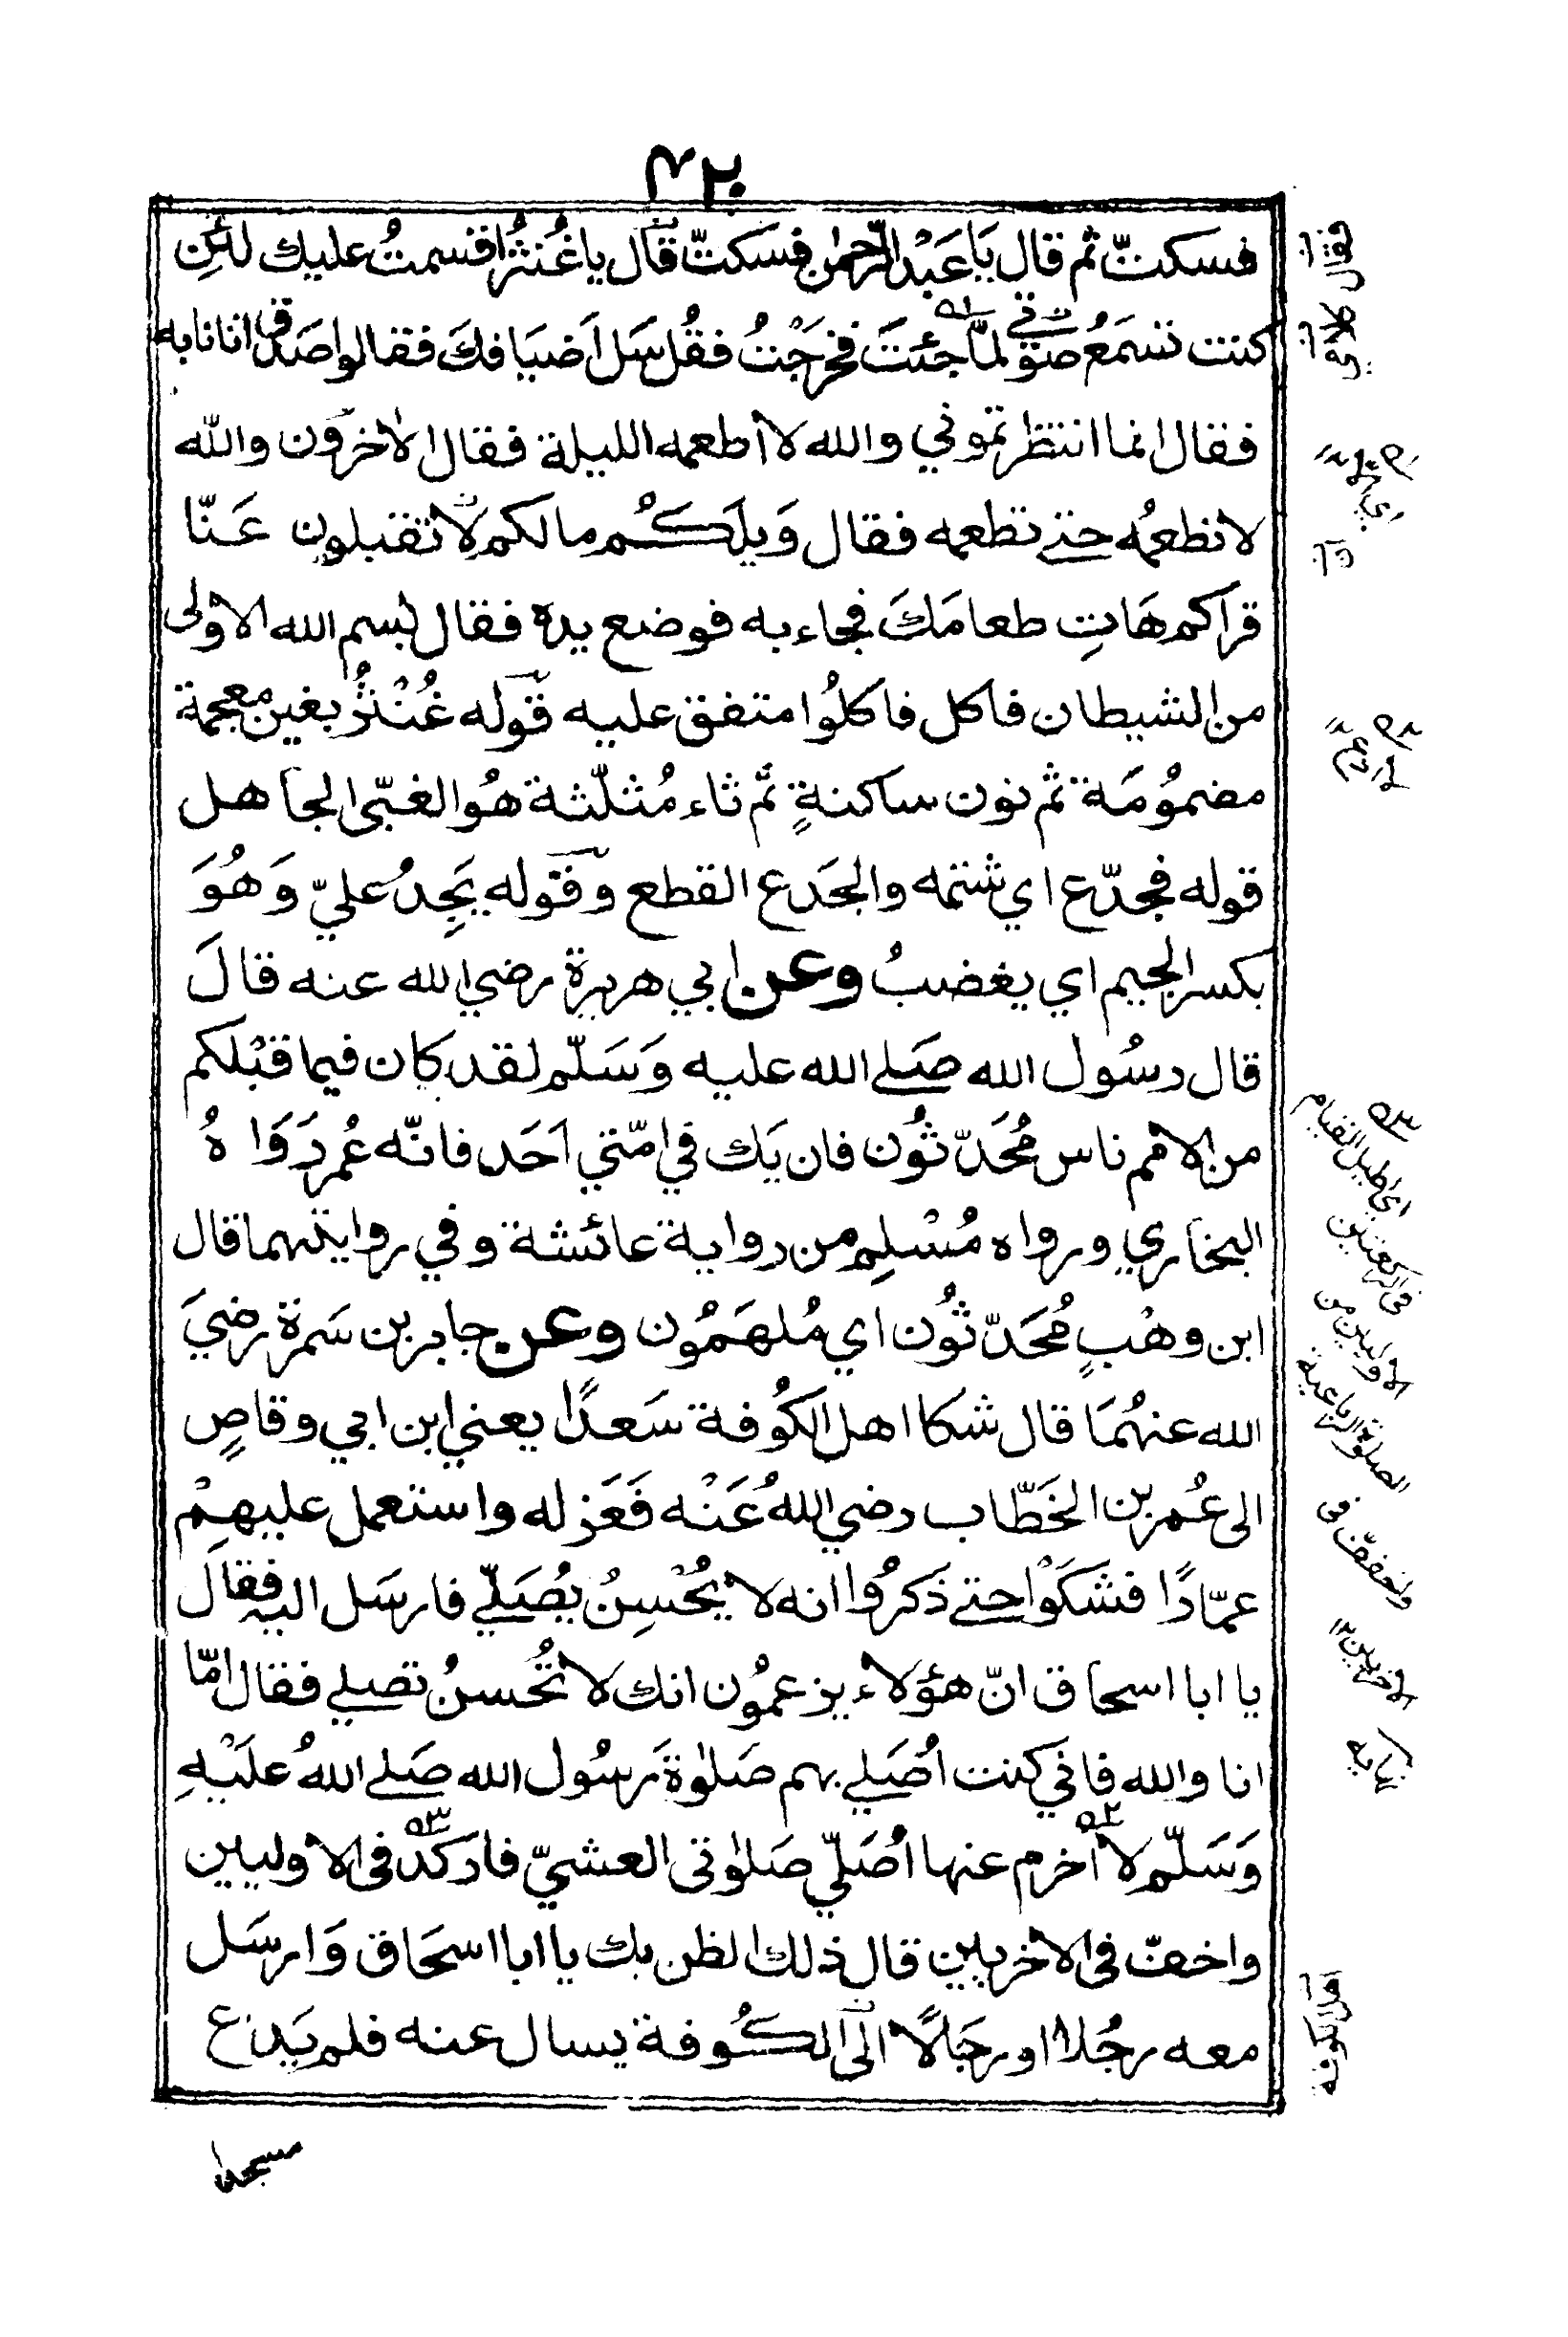 ٤٢٠
فسكتّ ثم قال يَا عَبْدَ الرّحمٰن فسَكتّ قال يا غُنثَرُ اقسمتُ عليك لئن
كنت تَسْمَعُ صَوْتي لمّا جئتَ فخرجْتُ فقُل سَل اَضيَافكَ فقالوا صَدَق اتانا به
فقال انما انتظرتموني والله لا اطعمه الليلة فقال الاٰخرون والله
لا نطعمُه حتى تطعمه فقال وَيلَكُم مالكم لا تقبلون عَنّا
قراكم هَاتِ طعامَكَ فجاء به فوضع يده فقال بسم الله الاولى
من الشيطان فاكل فاكلُوا متفق عليه قوله غُنْثَرُ بغين معجمة
مضمُومَة ثم نون ساكنةٍ ثم ثاء مُثلّثة هُو الغبّى الجاهل
قوله فجدّع اي شتمه والجَدع القطع وقوله يَجِدُ عليّ وَهُوَ
بكسر الجيم اي يغضبُ وعن ابي هريرة رضي الله عنه قالَ
قال رسُول الله صَلى الله عليه وَسَلّم لقد كان فيما قبْلكم
من الامم ناس مُحَدّثُون فان يَك في امّتي اَحَد فانّه عُمر رَوَاهُ
البخاري ورواه مُسْلِم من رواية عائشة وفي روايتهما قال
ابن وهْبٍ مُحَدّثُون اي مُلهَمُون وعن جابر بن سَمرة رضيَ
الله عنهُمَا قال شكا اهل الكُوفة سَعدًا يعني ابن ابي وقاصٍ
الى عُمر بن الخَطّاب رضي اللهُ عَنْه فَعَزله واستعمل عليهِمْ
عمّارًا فشَكَوْا حتى ذَكرُوا انه لا يُحْسِنُ يُصَلّي فارسَل اليه فقالَ
يا ابا اسحاق انّ هؤلاء يزعمُون انك لا تُحسنُ تصلي فقال امّا
انا والله فاني كنت اُصَلي بهم صَلٰوةَ رسُول الله صَلى اللهُ عليْهِ
وَسَلّم لا اخرم عنها اُصَلّي صَلٰوتى العشيّ فاركدُ فى الاوليين
واخفّ فى الاخريين قال ذلك الظن بك يا ابا اسحَاق وَارسَل
معه رجُلا او رجَالًا الى الكُوفة يسال عنه فلم يَدع
مسجدا
فقال
٥٢
٥٣
اي اطيل القيام
في الركعتين
الاوليين من
الصلوة الرباعية
واخفف في
الاخريين
نهاية
اهل الكوفة